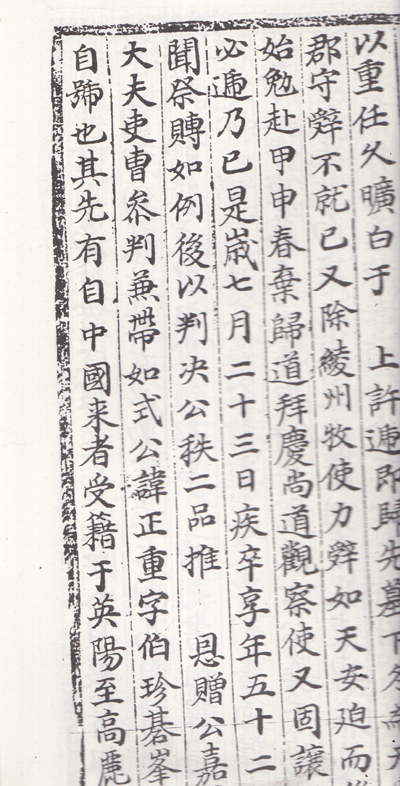 以重任久曠白于　上許遞即歸先墓下
郡守辤不就已又除綾州牧使力辤如天安迫而
始勉赴甲申春棄歸道拜慶尚道觀察使又固讓
必遞乃已是歲七月二十三日疾卒享年五十二
聞祭賻如例後以判决公秩二品推　恩贈公嘉
大夫吏曹叅判兼帶如式公諱正重字伯珍碁峯
自號也其先有自中國来者受籍于英陽至高麗